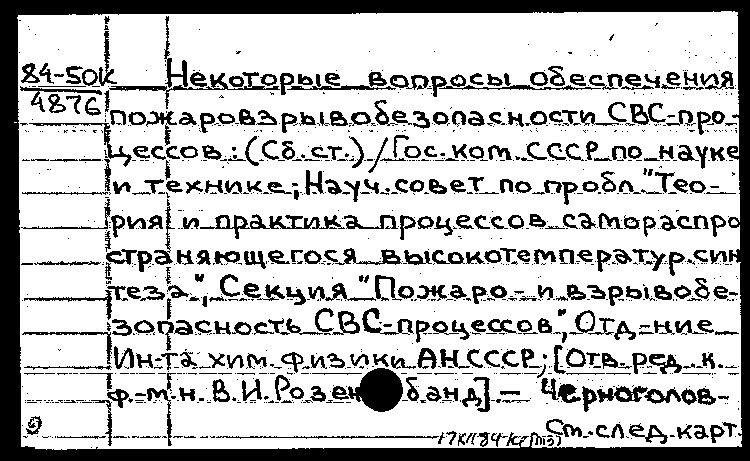 84-50К Некоторые вопросы обеспечения
4876 пожаровзрывобезопасности СВС-про-
цессов: (Сб. ст.) / Гос. ком. СССР по науке
и технике; Науч. совет по пробл. "Тео-
рия и практика процессов самораспро
страняющегося высокотемператур. син
теза", Секция "Пожаро- и взрывобе-
зопасность СВС-процессов", Отд-ние
Ин-та хим. физики АН СССР; [Отв. ред. к.
ф.-м. н. В. И. банд]. — Черноголов-
См. след. карт.